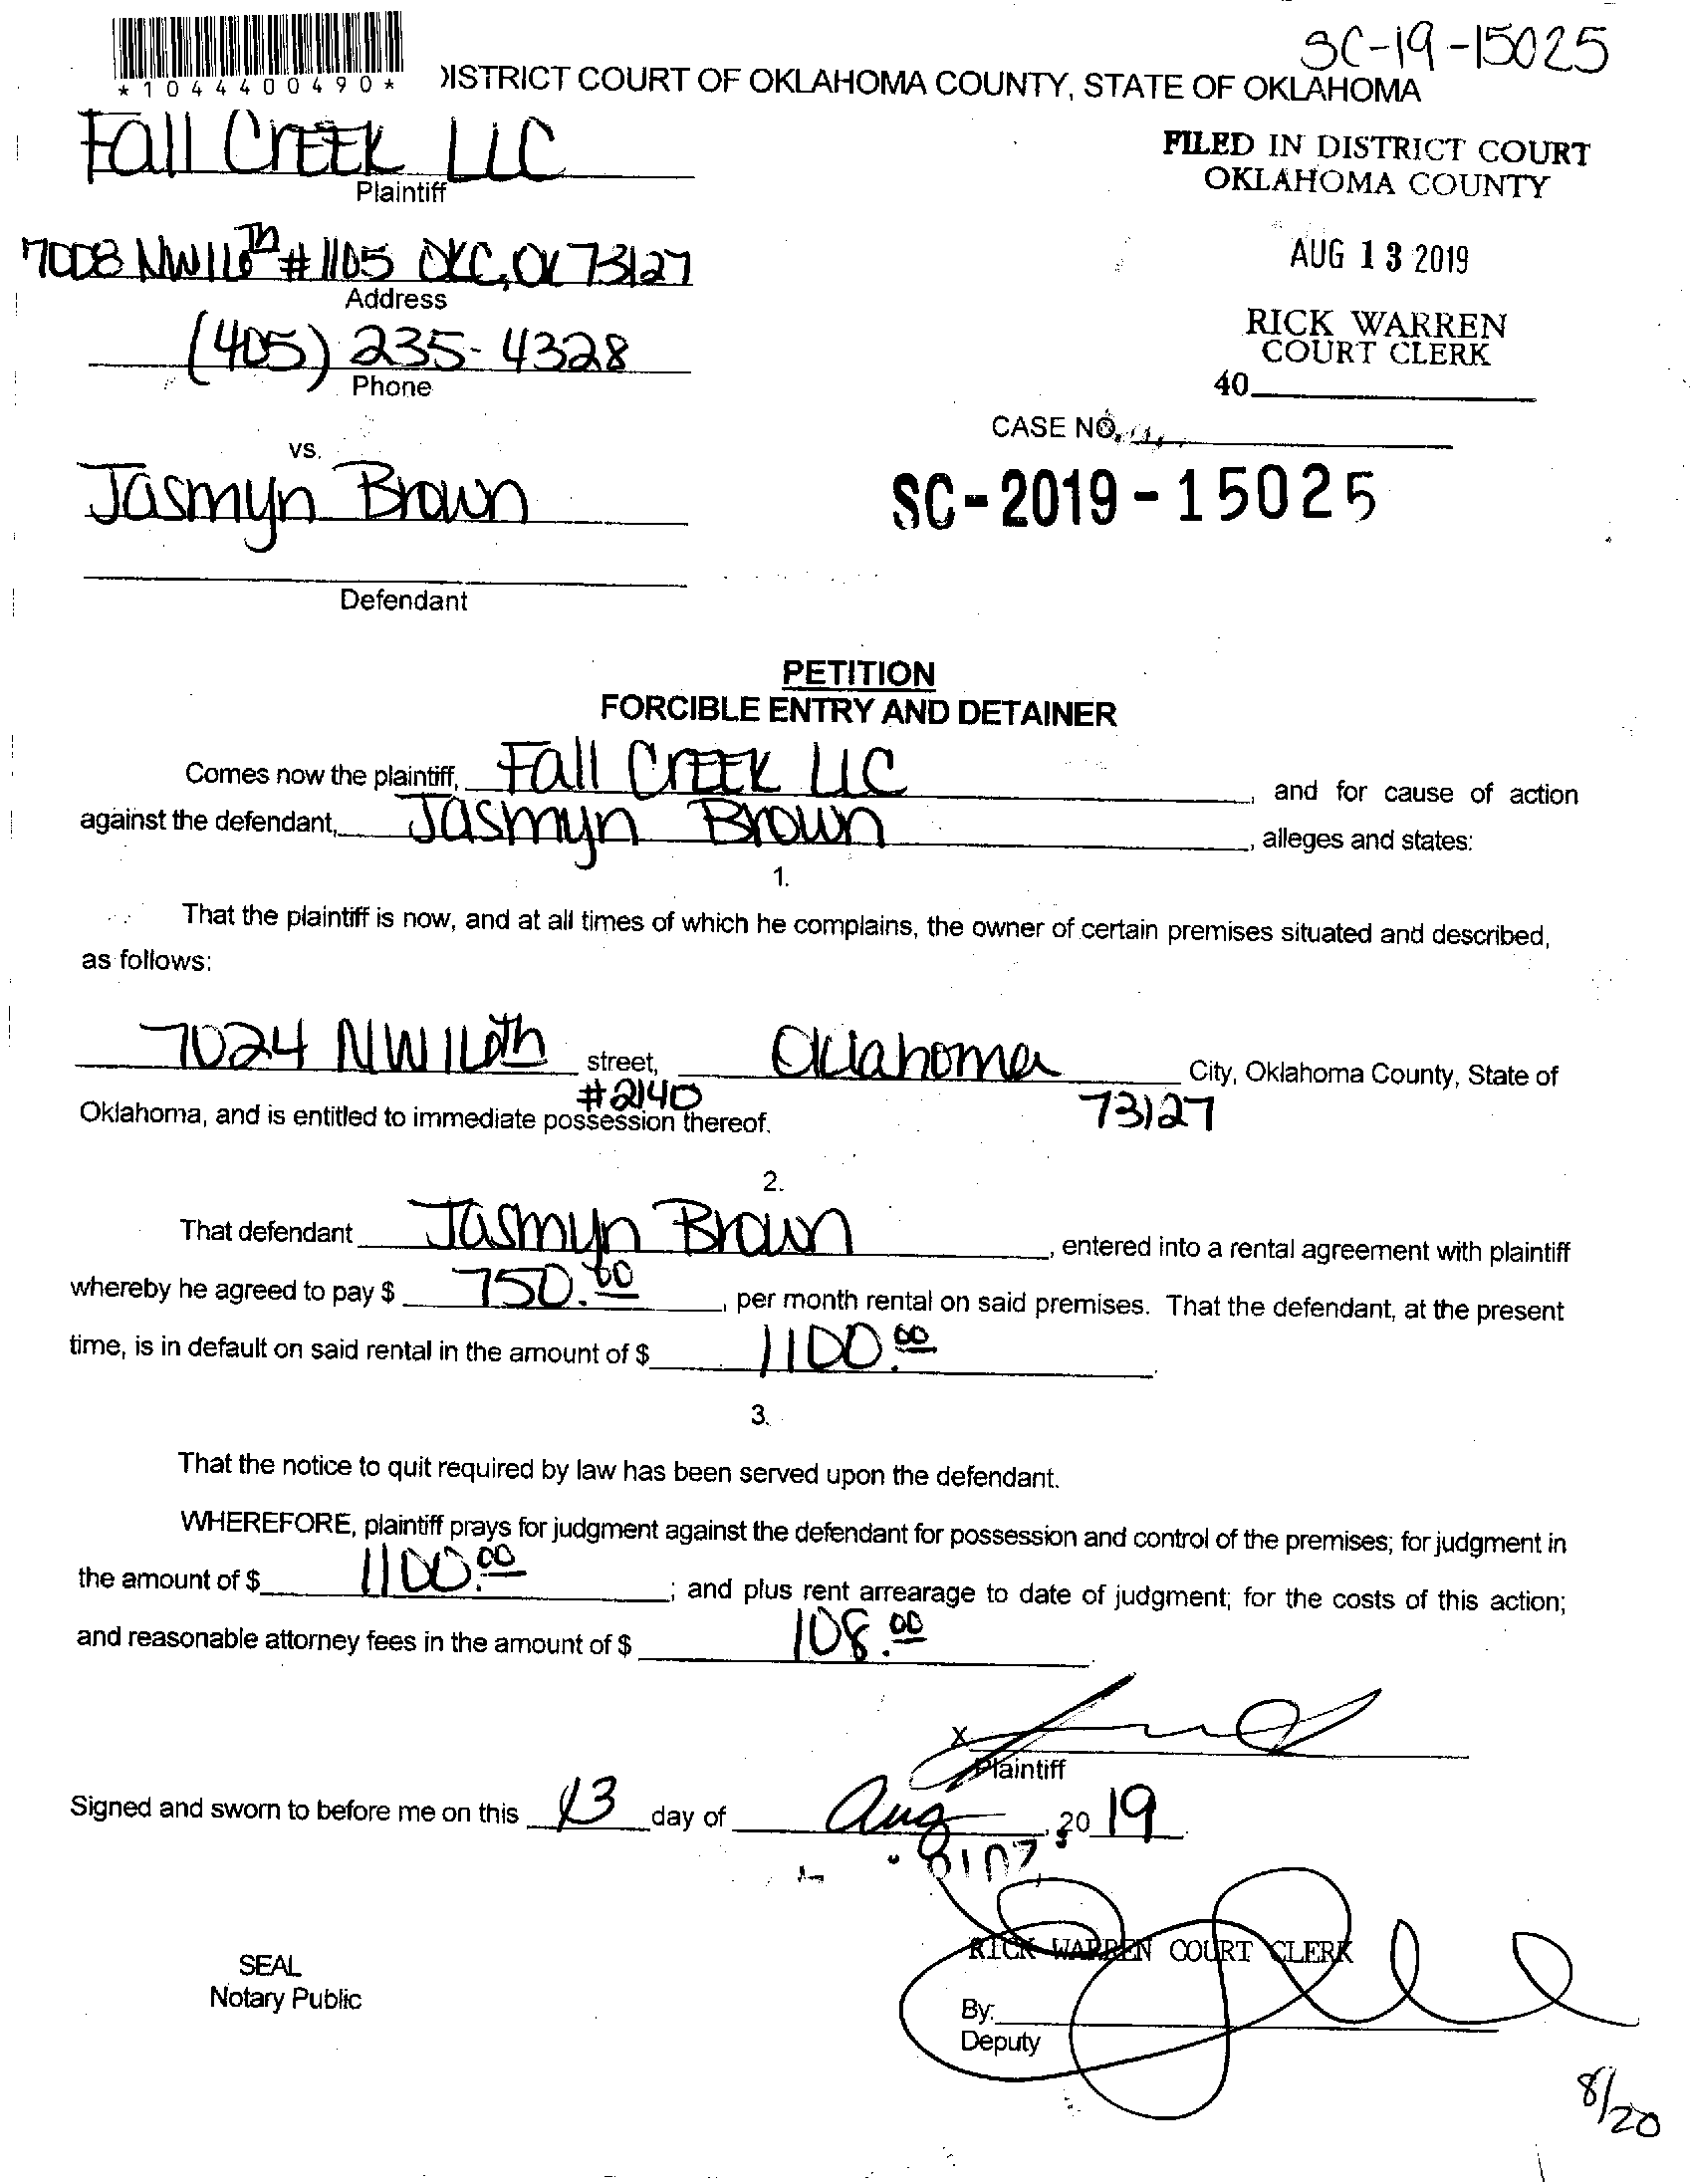 SC-19-15025
*1044400490*
DISTRICT COURT OF OKLAHOMA COUNTY, STATE OF OKLAHOMA
Fall Creek LLC
Plaintiff
FILED IN DISTRICT COURT
OKLAHOMA COUNTY
7008 NW 16th #1105 OKC, OK 73127
Address
AUG 13 2019
(405) 235-4328
Phone
RICK WARREN
COURT CLERK
40
CASE NO.
vs.
Jasmyn Brown
SC-2019-15025
Defendant
PETITION
FORCIBLE ENTRY AND DETAINER
Comes now the plaintiff, Fall Creek LLC and for cause of action
against the defendant, Jasmyn Brown, alleges and states:
1.
That the plaintiff is now, and at all times of which he complains, the owner of certain premises situated and described,
as follows:
7024 NW 16th street, Oklahoma City, Oklahoma County, State of
#2140 73127
Oklahoma, and is entitled to immediate possession thereof.
2.
That defendant Jasmyn Brown, entered into a rental agreement with plaintiff
whereby he agreed to pay $ 750.00, per month rental on said premises. That the defendant, at the present
time, is in default on said rental in the amount of $ 1100.00.
3.
That the notice to quit required by law has been served upon the defendant.
WHEREFORE, plaintiff prays for judgment against the defendant for possession and control of the premises; for judgment in
the amount of $ 1100.00; and plus rent arrearage to date of judgment; for the costs of this action;
and reasonable attorney fees in the amount of $ 108.00.
X
Plaintiff
Signed and sworn to before me on this 13 day of Aug, 2019.
RICK WARREN COURT CLERK
SEAL
Notary Public
By:
Deputy
8/20